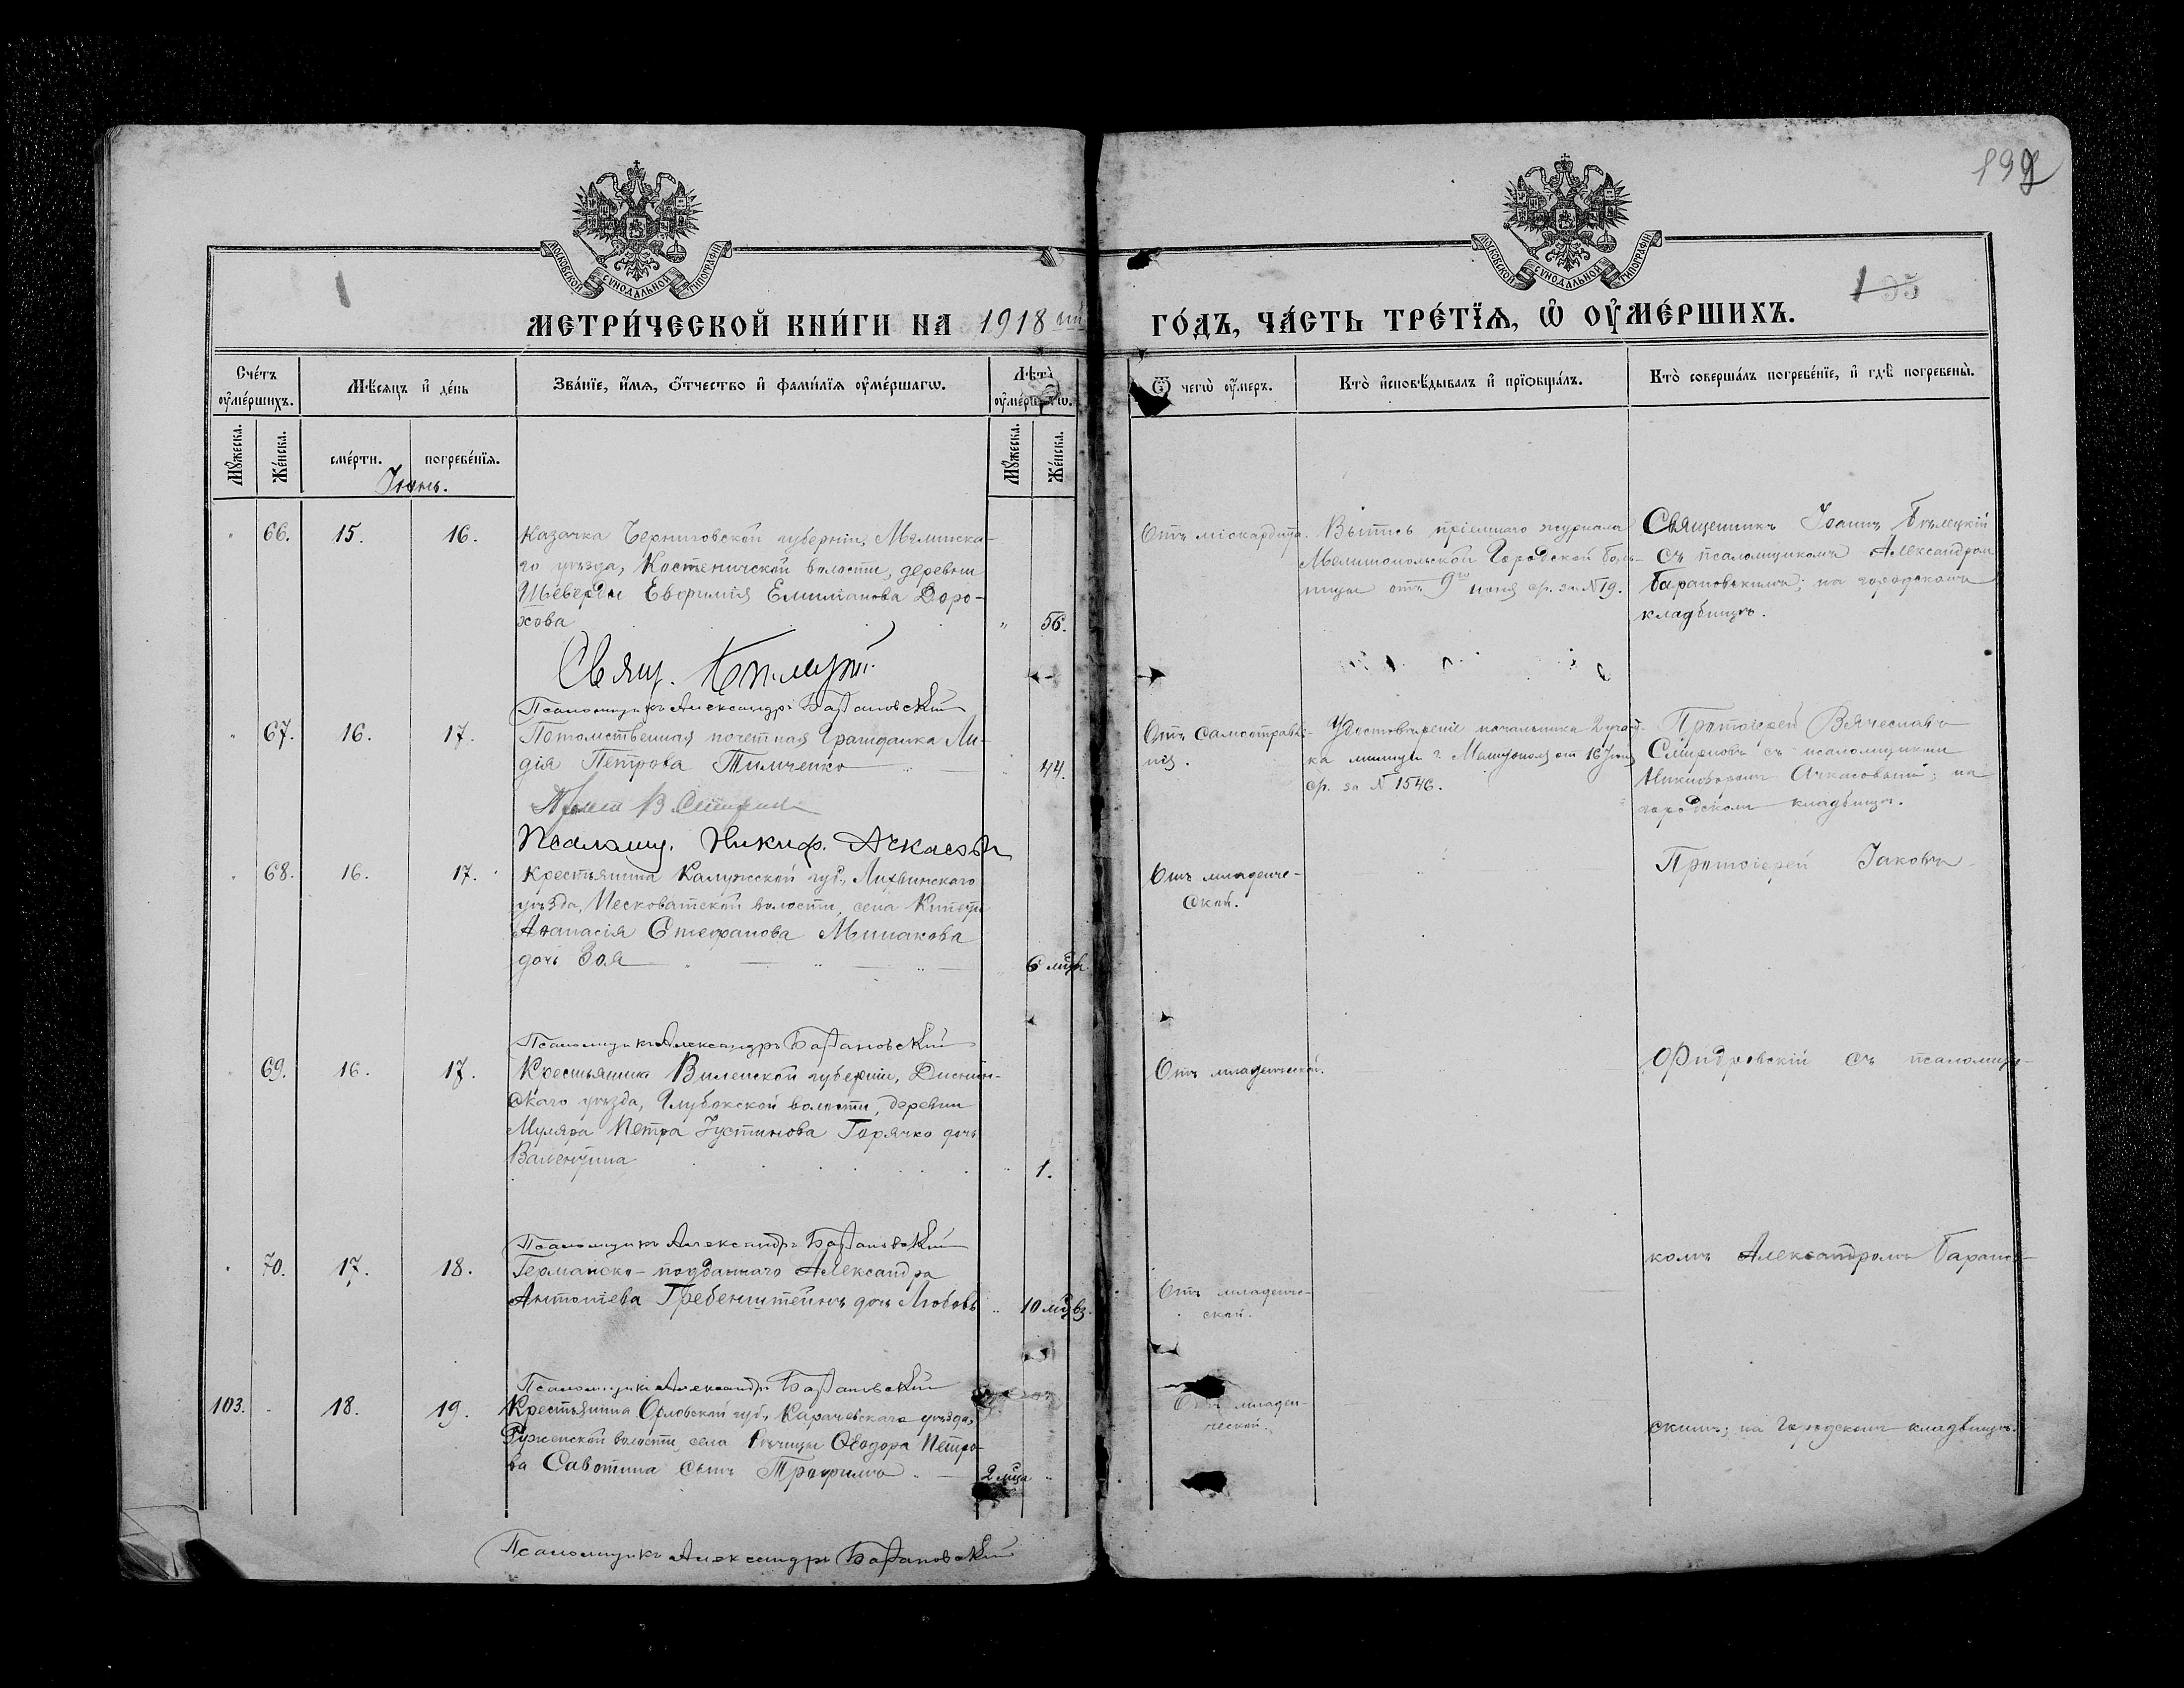 199
МОСКОВСКОЙ СѴНОДАЛЬНОЙ ТИПОГРАФІИ
МОСКОВСКОЙ СѴНОДАЛЬНОЙ ТИПОГРАФІИ
1
195
МЕТРИ́ЧЕСКОЙ КНИ́ГИ НА 1918 ый
ГО́ДЪ, ЧА́СТЬ ТРЕ́ТЇѦ, Ѡ҆ ОУ҆МЕ́РШИХЪ.
Сче́тъ оу҆ме́ршихъ.
Мѣ́сяцъ и҆ де́нь
Зва́нїе, и҆́мѧ, ѻ҆́тчество и҆ фами́лїѧ оу҆ме́ршагѡ.
Лѣ̀та оу҆ме́ршагѡ.
Ѿ чегѡ̀ оу҆́меръ.
Кто̀ и҆сповѣ́дывалъ и҆ прїѡбща́лъ.
Кто̀ соверша́лъ погребе́нїе, и҆ гдѣ̀ погребены̀.
Мꙋ́жеска.
Же́нска.
сме́рти.
погребе́нїѧ.
Мꙋ́жеска.
Же́нска.
Іюнь.
66. 15. 16.
Казачка Черниговской губерніи, Мглинска-
го уѣзда, Костеничской волости, деревни
Шеверды Евфимія Емиліанова Доро-
хова
56.
Отъ міокардита.
Выпись пріемнаго журнала
Мелитопольской Городской Боль-
ницы отъ 9го іюня ср. за № 19.
Священникъ Іоаннъ Бѣлицкій
съ псаломщикомъ Александром
Барановскимъ; на городскомъ
кладбищѣ.
Свящ.
Псаломщикъ Александръ Барановскій
67. 16. 17.
Потомственная почетная Гражданка Ли-
дія Петрова Тимченко
44.
Отъ самоотравле-
нія.
Удостовѣреніе начальника 2 участ-
ка милиціи г. Мелитополя от 16 Іюня
ср. за № 1546.
Протоіерей Вячеславъ
Смирновъ съ псаломщиком
Никифоромъ Ачкасовымъ; на
городском кладбищѣ.
Псаломщ. Никиф. Ачкасовъ
68. 16. 17.
Крестьянина Калужской губ., Лихвинскаго
уѣзда, Песковатской волости, села
Аѳанасія Стефанова Минакова
дочь Зоя
6 мцѣв
Отъ младенче-
ской.
Протоіерей Іаковъ
Псаломщикъ Александръ Барановскій
69. 16. 17.
Крестьянина Виленской губерніи, Диснин-
скаго уѣзда, Глубокской волости, деревни
Муляра Петра Іустинова Горячко дочь
Валентина
1.
Отъ младенческой.
съ псаломщи-
Псаломщикъ Александръ Барановскій
70. 17. 18.
Германско-подданнаго Александра
Антоніева Гребенштейнъ дочь Любовь
10 мцѣв.
Отъ младенче-
ской.
комъ Александромъ Баранов-
Псаломщикъ Александръ Барановскій
103. 18. 19.
Крестьянина Орловской губ., Карачевскаго уѣзда,
волости, села Ѳеодора Петро-
ва Савотина сынъ Трофимъ
2 мца
Отъ младен-
ческой.
скимъ; на Городскомъ кладбищѣ.
Псаломщикъ Александръ Барановскій